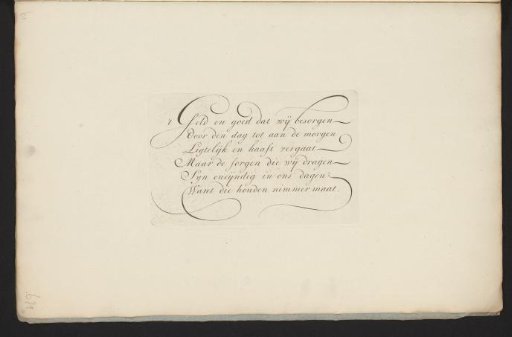 't Geld en goed dat wij besorgen
Voor den dag tot aan de morgen
Ligtelijk en haast vergaat
Maar de sorgen die wij dragen
Syn oneyndig in ons dagen
Want die houden nimmer maat.